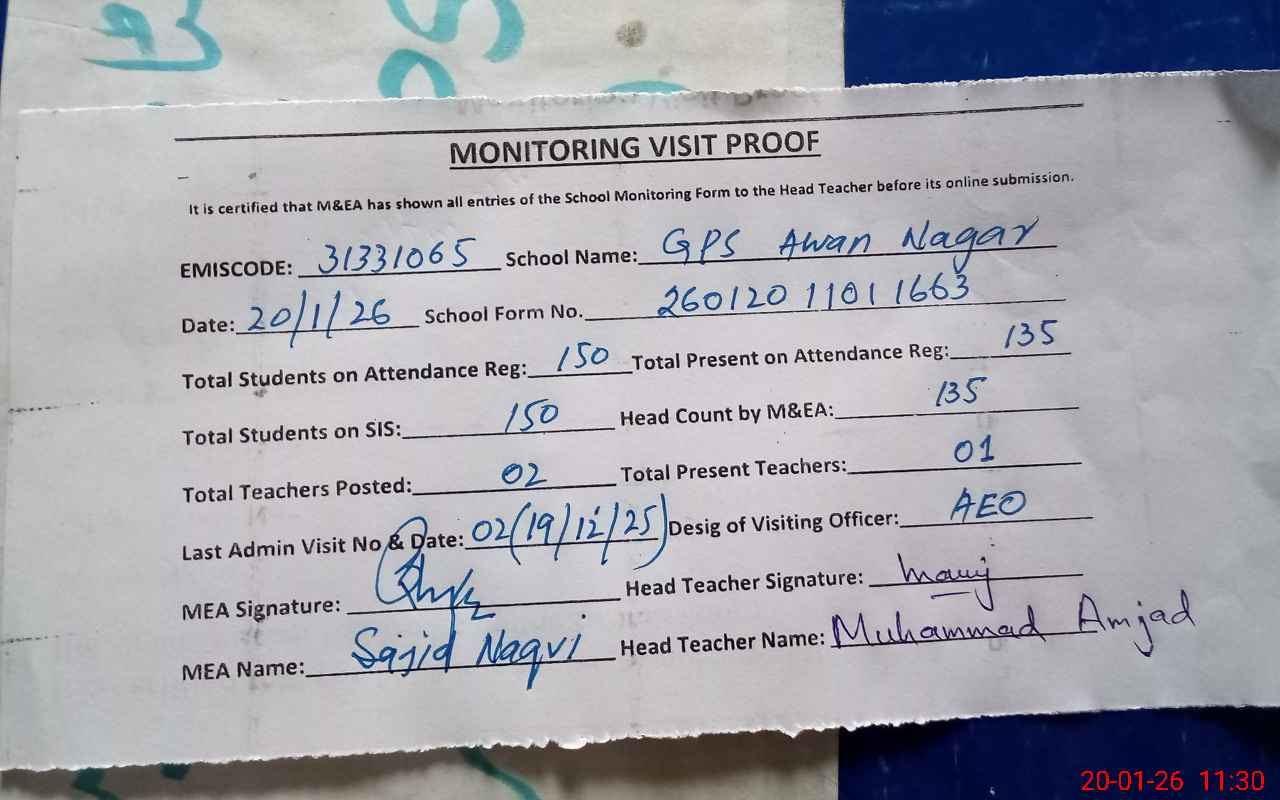 MONITORING VISIT PROOF
It is certified that M&EA has shown all entries of the School Monitoring Form to the Head Teacher before its online submission.
EMISCODE: 31331065 School Name: GPS Awan Nagar
Date: 20/1/26 School Form No. 260120 11011663
Total Students on Attendance Reg: 150 Total Present on Attendance Reg: 135
Total Students on SIS: 150 Head Count by M&EA: 135
Total Teachers Posted: 02 Total Present Teachers: 01
Last Admin Visit No & Date: 02(19/12/25) Desig of Visiting Officer: AEO
MEA Signature: Head Teacher Signature:
MEA Name: Sajid Naqvi Head Teacher Name: Muhammad Amjad
20-01-26 11:30